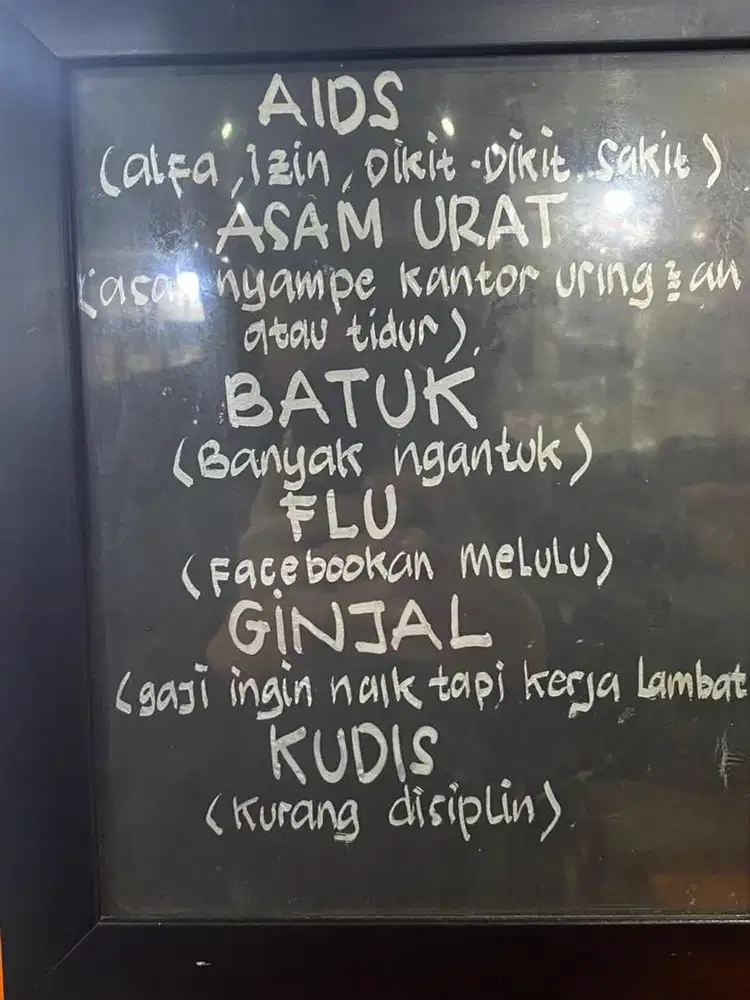 AIDS
(alfa, izin, Dikit-Dikit Sakit)
ASAM URAT
(asal nyampe kantor uring2an
atau tidur).
BATUK
(Banyak ngantuk)
FLU
(Facebookan melulu)
GINJAL
(gaji ingin naik tapi kerja Lambat
KUDIS
(Kurang disiplin)